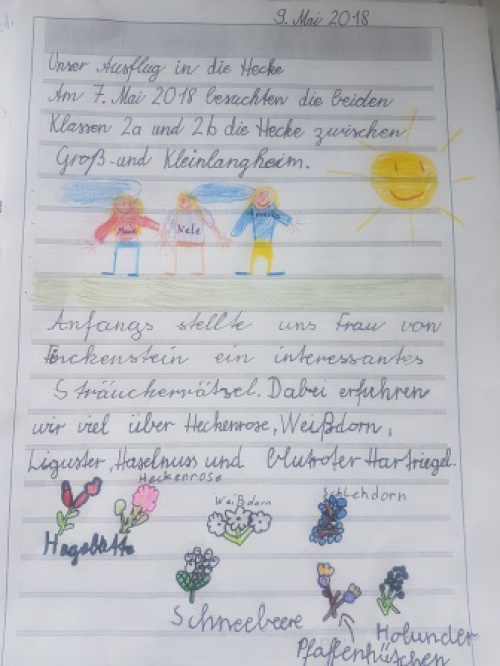 9. Mai 2018
Unser Ausflug in die Hecke
Am 7. Mai 2018 besuchten die beiden
Klassen 2a und 2b die Hecke zwischen
Groß- und Kleinlangheim.
Nele
Anfangs stellte uns Frau von
ein interessantes
Sträucherrätsel. Dabei erfuhren
wir viel über Heckenrose, Weißdorn,
Liguster, Haselnuss und blutroter Hartriegel.
Heckenrose
Weißdorn
Schlehdorn
Hagebutte
Schneebeere
Holunder
Pfaffenhütchen